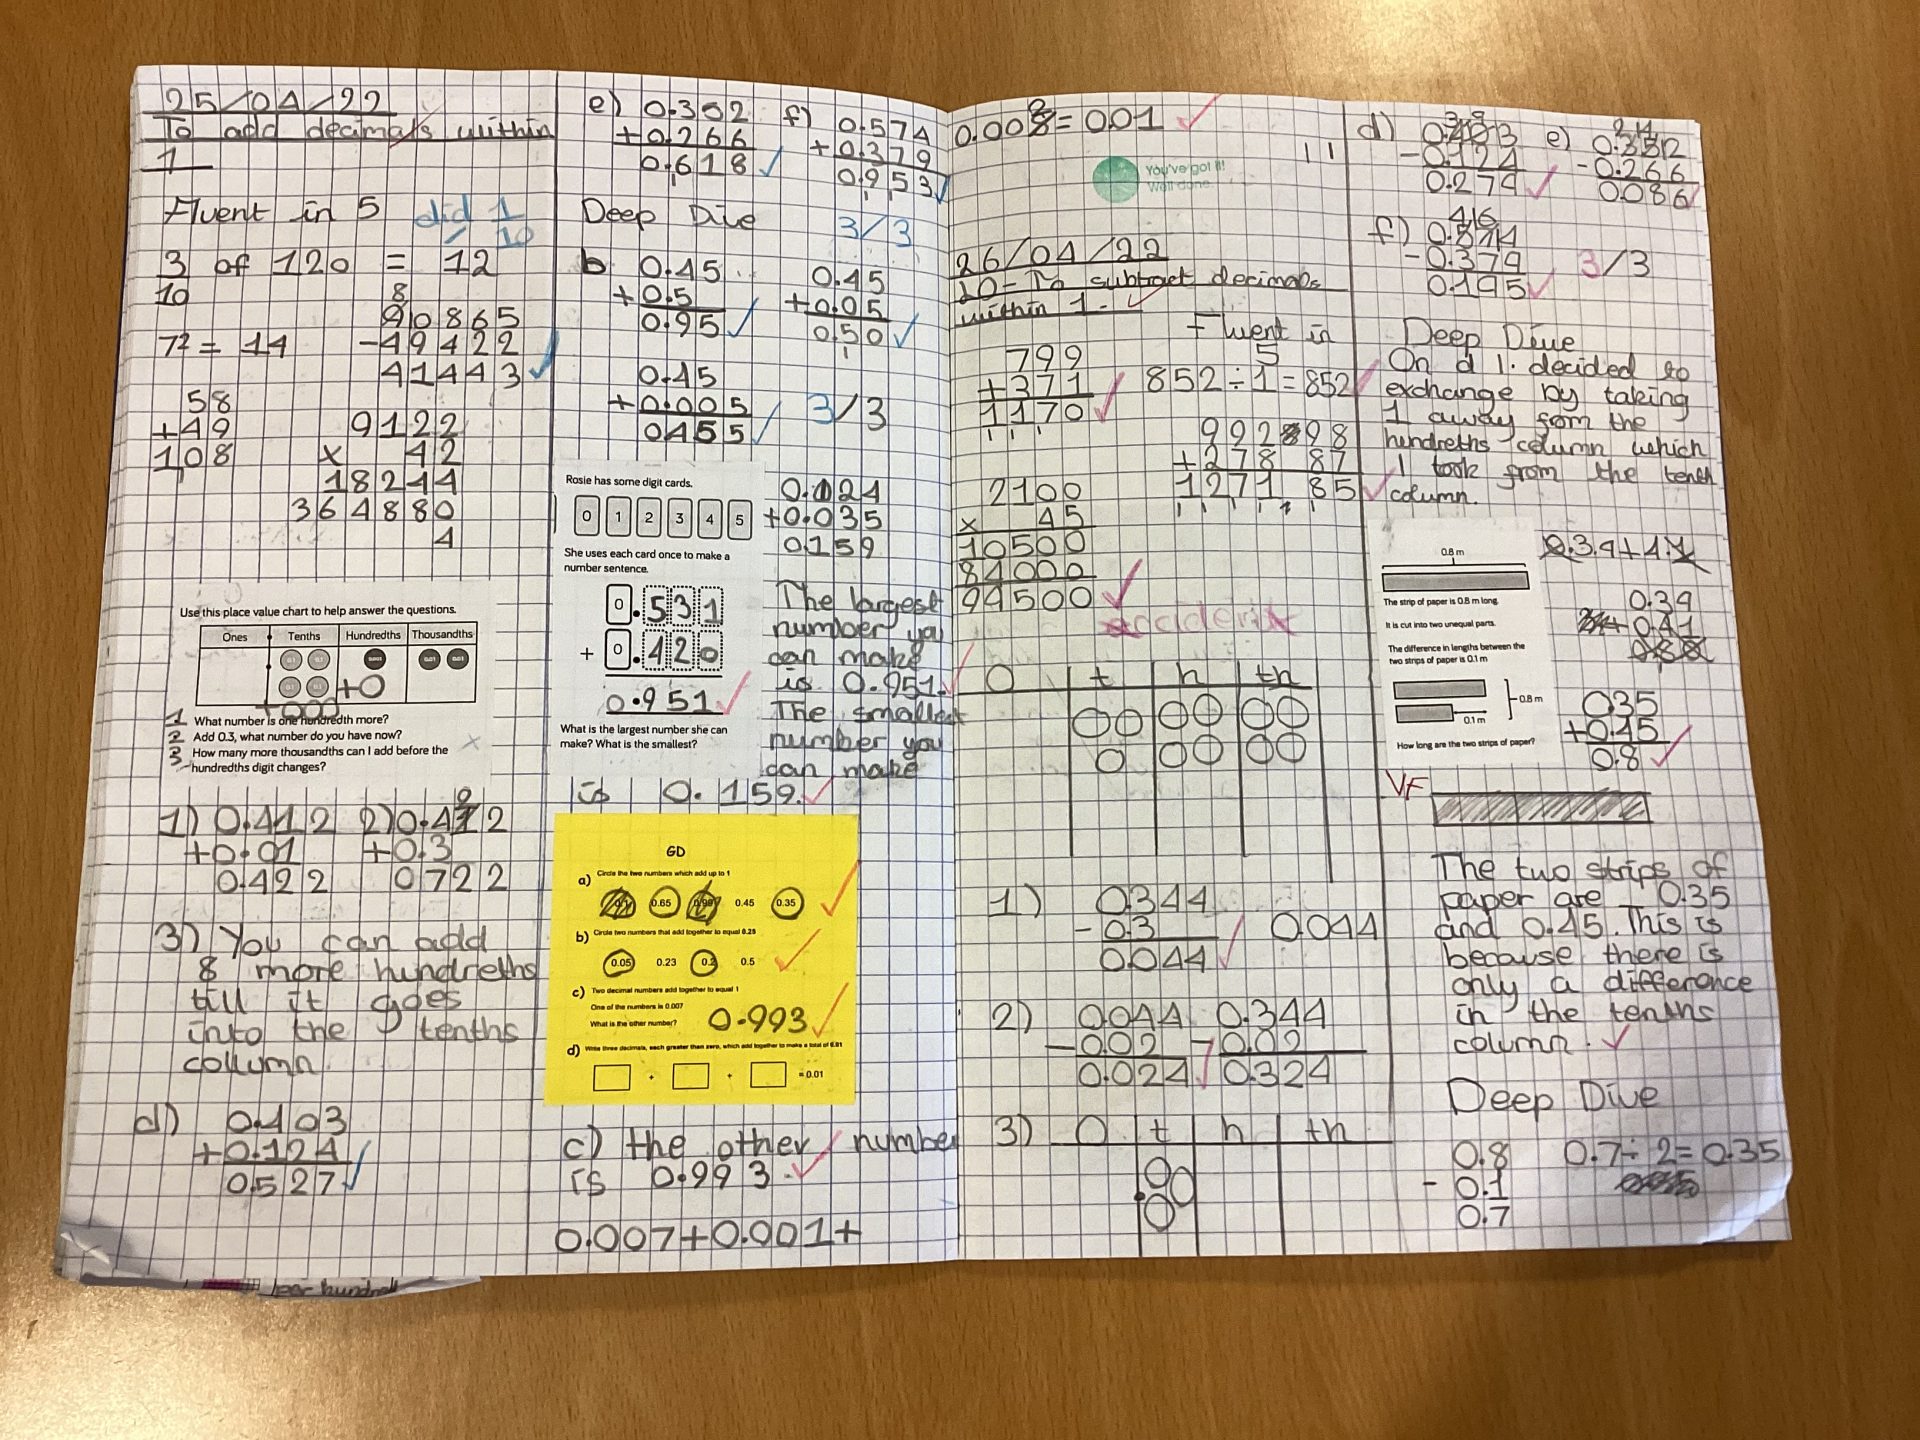 25/04/22
To add decimals within
1
Fluent in 5 did 1/10
3/10 of 120 = 12
8
90865
7² = 14 -49422
41443
58
+49 9122
108 x 42
18244
364880
4
Use this place value chart to help answer the questions.
Ones Tenths Hundredths Thousandths
0.1 0.1 0.001 0.01 0.01
0.1 0.1 +O
+OOO
1 What number is one hundredth more?
2 Add 0.3, what number do you have now?
3 How many more thousandths can I add before the
hundredths digit changes?
1) 0.412 2) 0.412
+0.01 +0.3
0.422 0722
3) You can add
8 more hundreths
till it goes
into the tenths
collumn.
d) 0.403
+0.124
0.527
e) 0.352 f) 0.574
+0.266 +0.379
0.618 0.953
Deep Dive 3/3
b 0.45 0.45
+0.5 +0.05
0.95 0.50
0.45
+0.005 3/3
0455
Rosie has some digit cards.
0 1 2 3 4 5
She uses each card once to make a
number sentence.
0.531
+ 0.420
0.951
What is the largest number she can
make? What is the smallest?
0.124
+0.035
0.159
The largest
number you
can make
is 0.951.
The smallest
number you
can make
is 0.159.
GD
a) Circle the two numbers which add up to 1
0.65 0.45 0.35
b) Circle two numbers that add together to equal 0.25
0.05 0.23 0.2 0.5
c) Two decimal numbers add together to equal 1
One of the numbers is 0.007
What is the other number? 0.993
d) Write three decimals, each greater than zero, which add together to make a total of 0.01
+ + = 0.01
c) the other number
is 0.993.
0.007+0.001+
0.002 = 0.01
You've got it!
Well done
26/04/22
LO- To subtract decimals
within 1.
Fluent in
5
799
+371 852÷1=852
1170
992898
+278 87
1271 85
2100
x 45
10500
84000
94500
accident
O t h th
1) 0344
- 0.3 0.044
0.044
2) 0.044 0.344
-0.02 -0.02
0.024 0.324
3) O t h th
d) 0.403 e) 0.352
-0.124 -0.266
0.279 0.086
f) 0.574
-0.379 3/3
0.195
Deep Dive
On d I decided to
exchange by taking
1 away from the
hundreths column which
I took from the tenth
column.
0.8 m
The strip of paper is 0.8 m long.
It is cut into two unequal parts.
The difference in lengths between the
two strips of paper is 0.1 m
0.8 m
0.1 m
How long are the two strips of paper?
0.39
+0.41
035
+0.45
0.8
VF
The two strips of
paper are 0.35
and 0.45. This is
because there is
only a difference
in the tenths
column.
Deep Dive
0.8 0.7÷2=0.35
- 0.1
0.7